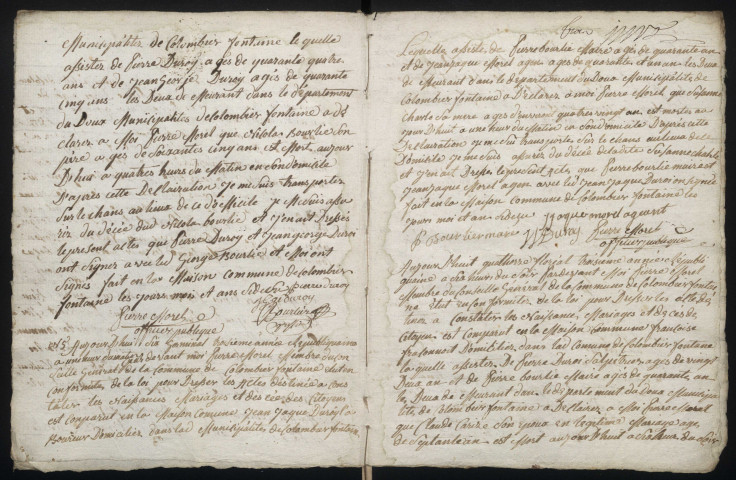 Municipalitez de Colombier fontaine le quelle
assistez de Pierre Duroÿ agés de quarante quatre
ans et de Jean George Duroÿ agés de quarante
cinq ans les Deux de Meurant dans le departement
du Doux Municipalitez de Colombier fontaine a de
clarez a Moi Pierre Morel que Nicolas Bourlie son
pere agés de Soixantes cinq ans est Mort aujour
Dhui a quatres heurs du Matin en son domicile
D'après cette Declairation je me suis transportez
sur le chans au lieux de ce Domicille je me suis apu
rez du décée dud Nicola bourlie et j'en ait Dressés
le present actes que Pierre Duroÿ et Jean george Duroi
ont Signez avec led George Bourlie et Moi ont
Signés fait en la Maison Commune de Colombier
fontaine les jours moi et ans Sidesus Pierre duroy
Pierre Morel J G duroy
officier publique Bourlier
Aujour D'hui du Germinal troisieme année republiquaine
a une heur du matin devant moi Pierre Morel Membre du Con
seille Général de la Commune de Colombier fontaine
conformitez de la loi pour Dresser les Actes destinéa a cons
tater les Naissances Mariages et déscées des Citoyens
est comparut en la Maison Comune Jean Jaque Duroÿ la
boureur Domicilier dans lad Municipalitez de Colombier fontaine
Lequelle assiste de Pierre bourlie Maire agés de quarante an
et de Jean Jaque Morel agen agés de quarantes et un an les Deux
de Meurant dans le departement du Doux Municipalité de
Colombier fontaine a Declarez a moi Pierre Morel que Suzanne
Charle Sa mere agés d'environt quatres vingt an est morte au
jour D'huit a une heur du Matin en son domicile D'après cette
Declairation je me suis transportez sur le chans au lieux de ce
Domicile je me suis apurez du décée de ladite Suzanne charle
et j'en ait Dressez le present actes que Pierre bourlie maire et
Jean Jaque Morel agen avec led Jean Jaque Duroi on Signé
fait en la Maison commune de Colombier fontaine les
jours moi et ans Sidesu J Jaque morel agent
P Bourlier maire J J Duroy Pierre Morel
officier publique
Aujour D'huit quattorse florial troisieme année republi
quaine a six heur du soir pardevant Moi Pierre Morel
Membre du Conseille General de la Commune de Colombier fontai
ne etat en conformitez de la loi pour Dresser les actes dés
tinez a Constater les Naissances, Mariages et décées de
Citoyen est comparut en la Maison Commune francoise
Domicilies dans lad Comune de Colombier fontaine
la quelle assistez De Pierre Duroi Salpetries agés de vingt
Deux an et de Pierre bourlie Maire agés de quarante an
les Deux de Meurant dans le departement du Doux Municipa
lité de Colombier fontaine a Declarez a Moi Pierre Morel
que Claude Son Epoux en legitime Mariage agé
de Septante an est Mort aujour D'huit a six heur du soir